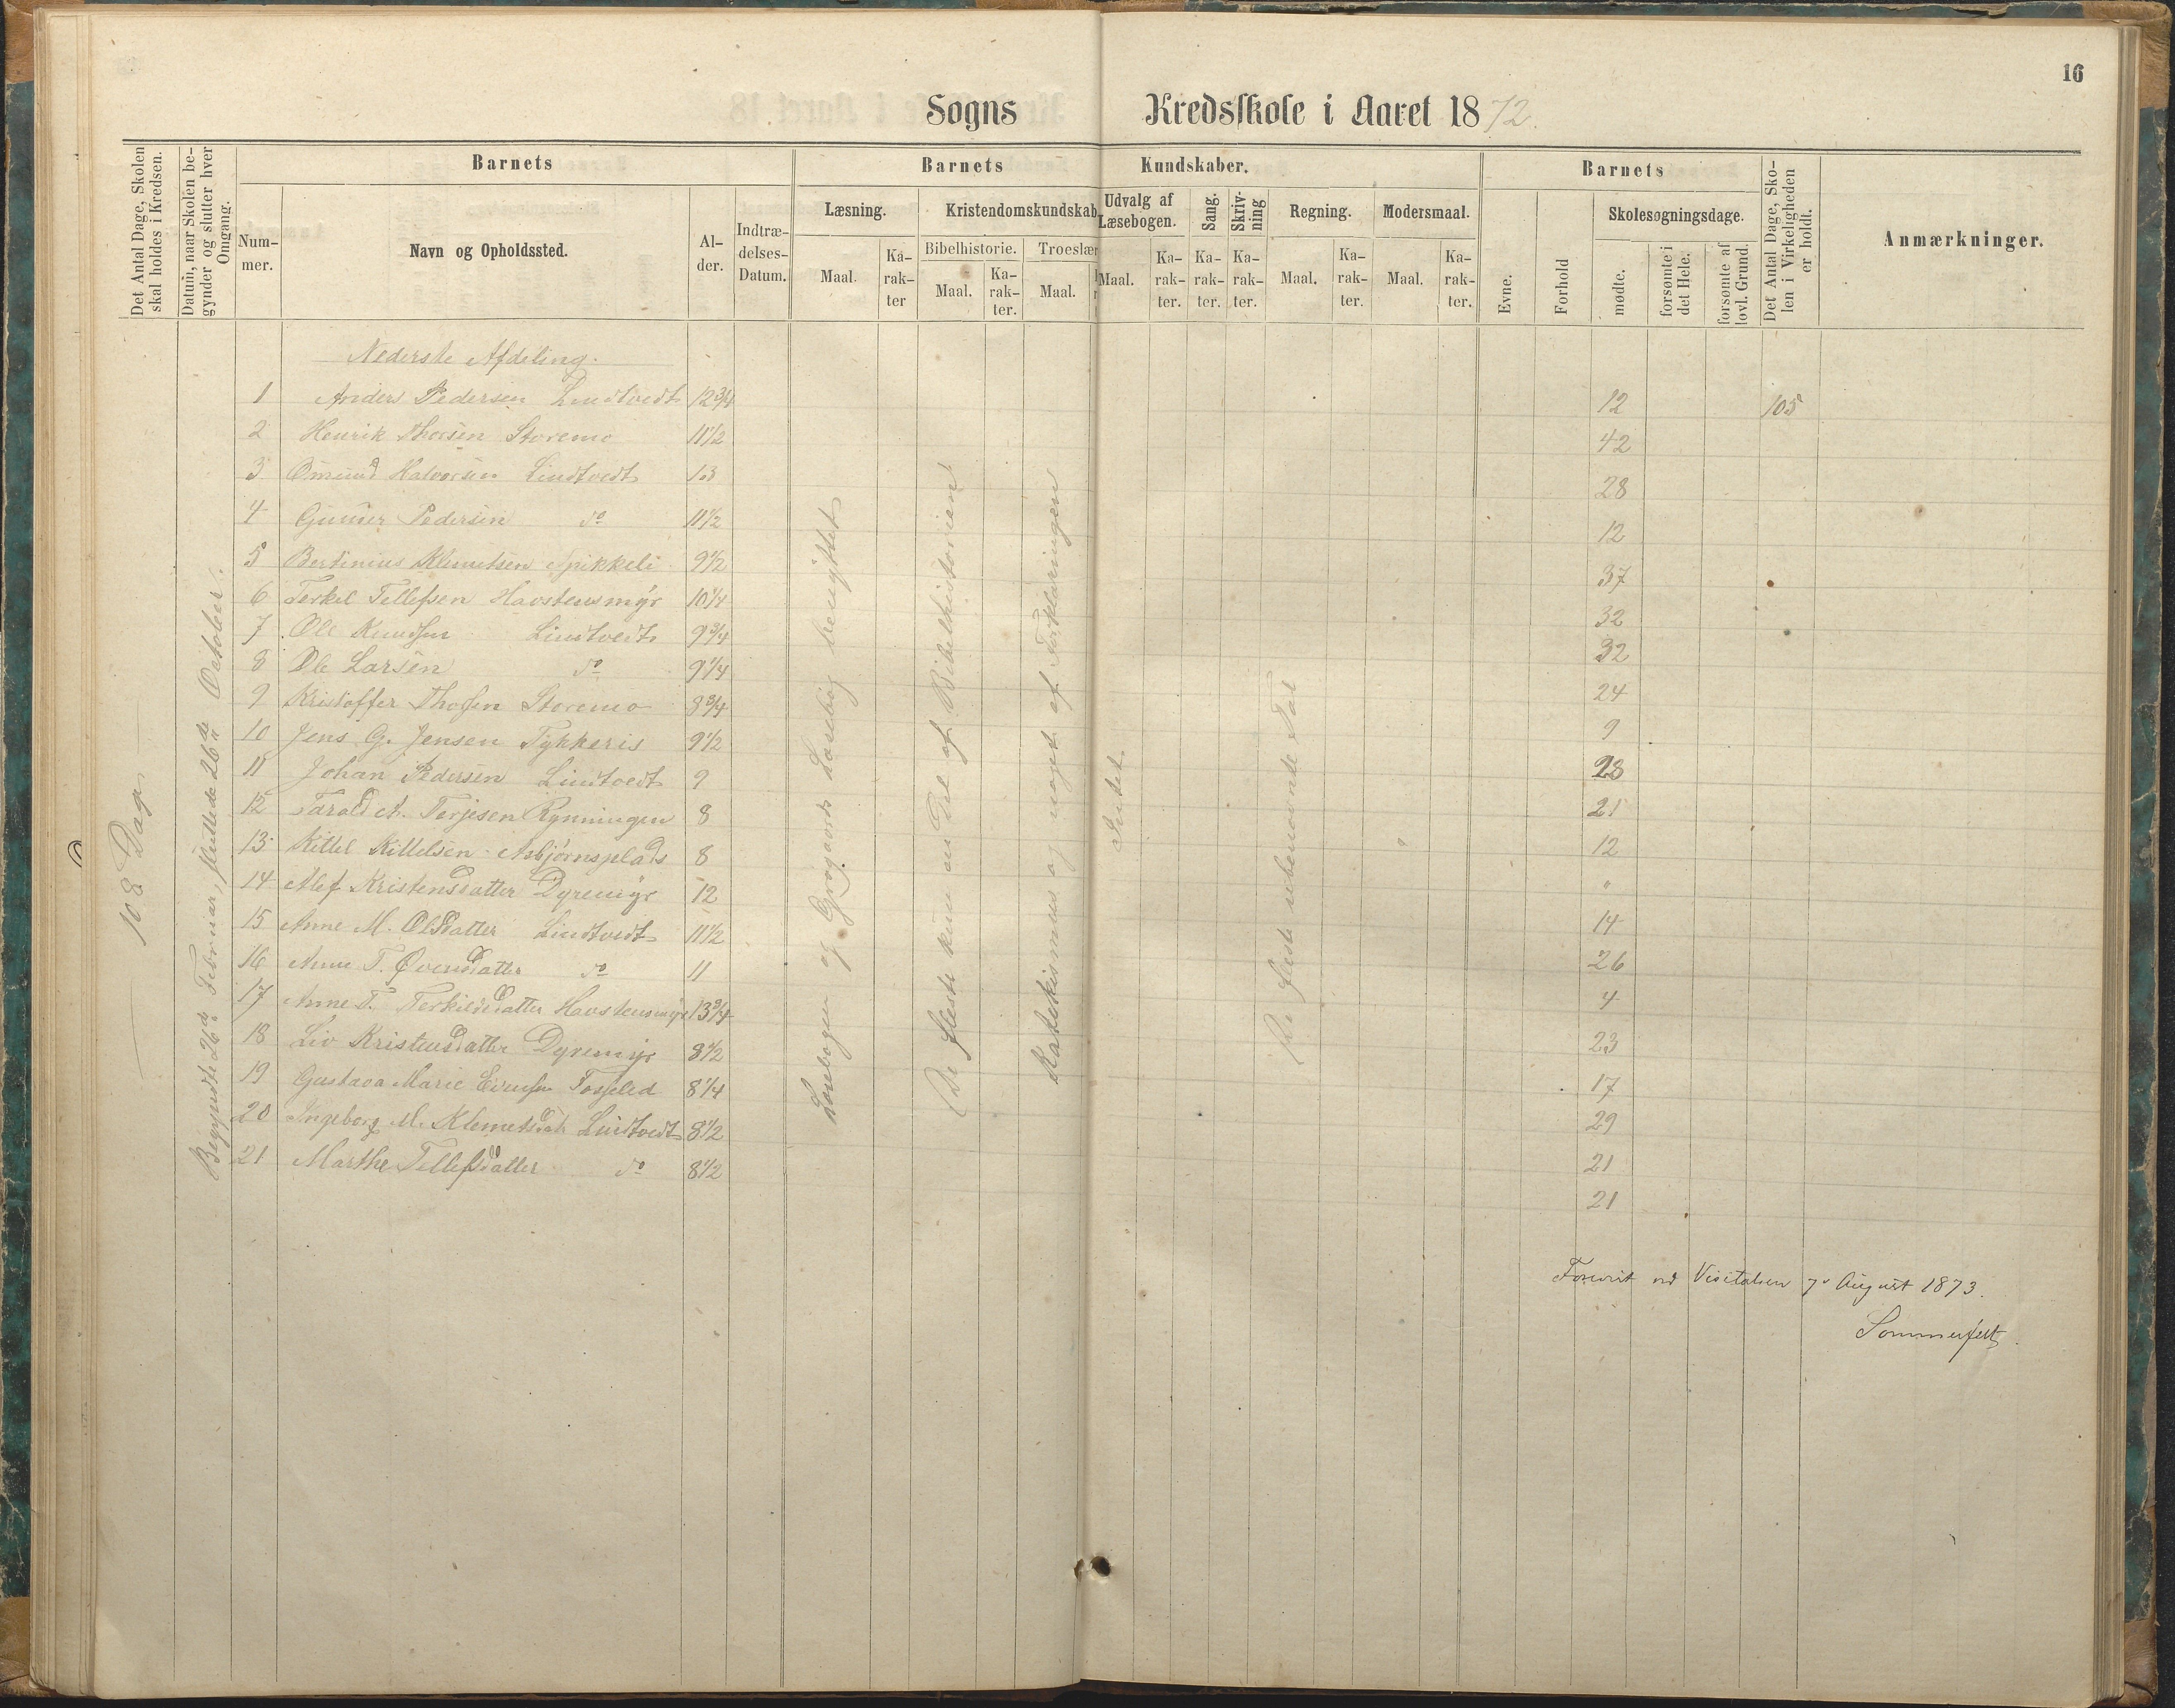 16
Sogns Kredsskole i Aaret 1872.
Det Antal Dage, Skolen skal holdes i Kredsen.
Datum, naar Skolen begynder og slutter hver Omgang.
Barnets
Nummer.
Navn og Opholdssted.
Alder.
Indtrædelses-Datum.
Barnets Kundskaber.
Læsning.
Maal.
Karakter
Kristendomskundskab
Bibelhistorie.
Maal.
Karakter.
Troeslær
Maal.
Udvalg af Læsebogen.
Maal.
Karakter.
Sang.
Karakter.
Skrivning
Karakter.
Regning.
Maal.
Karakter.
Modersmaal.
Maal.
Karakter.
Barnets
Evne.
Forhold
Skolesøgningsdage.
mødte.
forsømte i det Hele.
forsømte af lovl. Grund.
Det Antal Dage, Skolen i Virkeligheden er holdt.
Anmærkninger.
108 Dage
Begyndte 26de Februar, sluttede 26de October.
Nederste Afdeling.
1 Anders Pedersen Lindtvedt 12 3/4 12 105
2 Henrik Thorsen Storemo 11 1/2 42
3 Omund Halvorsen Lindtvedt 13 28
4 Gunner Pedersen do 11 1/2 12
5 Bertinius Klemetsen Spikkeli 9 1/2 37
6 Terkel Tellefsen Havstensmyr 10 1/4 32
7 Ole Knudsen Lindtvedt 9 3/4 32
8 Ole Larsen do 9 1/4 24
9 Kristoffer Thorsen Storemo 8 3/4 9
10 Jens G. Jensen Tykkeris 9 1/2 28
11 Johan Pedersen Lindtvedt 9 21
12 Tarald A. Terjesen Rynningen 8 12
13 Kittel Kittelsen Asbjørnsplads 8 "
14 Alef Kristensdatter Dyremyr 12 14
15 Anne M. Olsdatter Lindtvedt 11 1/2 26
16 Anne T. Evensdatter do 11 4
17 Anne T. Terkildsdatter Havstensmyr 13 3/4 23
18 Liv Kristensdatter Dyremyr 8 1/2 17
19 Gustava Marie Evensen Fosselid 8 1/4 29
20 Ingeborg M. Klemetsdat Lindtvedt 8 1/2 21
21 Marthe Tellefsdatter do 8 1/2 21
Læsebogen og Grogaards Læsebog benyttet
De fleste kun en Del af Bibelhistorien
Katekismus og noget af Forklaringen
Intet
De fleste ubenævnte Tal
"
Forevist ved Visitatsen 7de August 1873.
Sommerfelt.